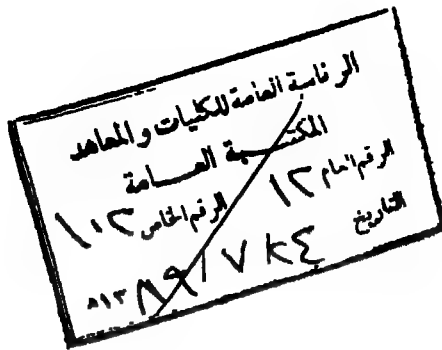 الرئاسة العامة للكليات والمعاهد
المكتبة العامة
الرقم العام ١٢ الرقم الخاص
التاريخ